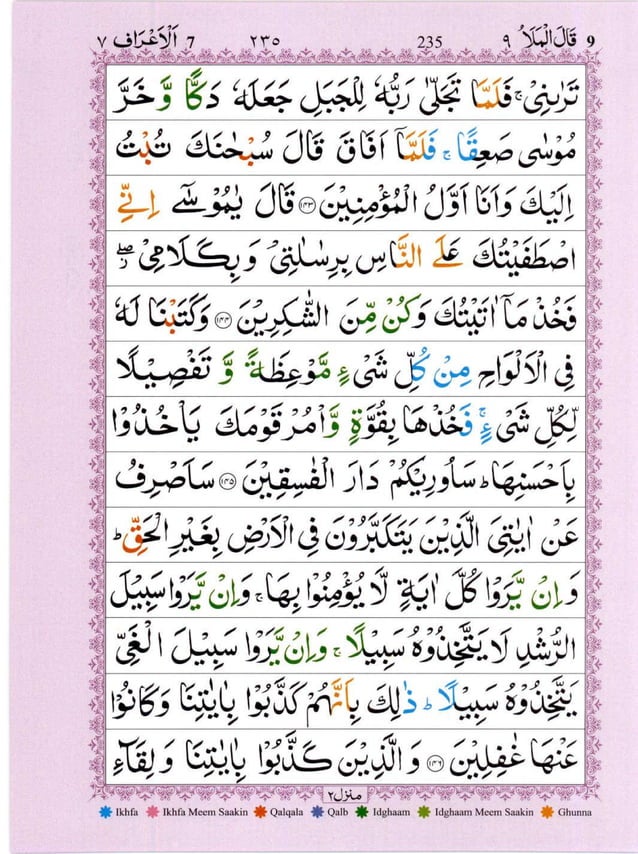 9 قَالَ الْمَلَاُ ٩ 235 ٢٣٥ 7 اَلْاَعْرَاف ٧
تَرٰىنِیْ ۚ فَلَمَّا تَجَلّٰی رَبُّهٗ لِلْجَبَلِ جَعَلَهٗ دَكًّا وَّ خَرَّ
مُوْسٰی صَعِقًا ۚ فَلَمَّاۤ اَفَاقَ قَالَ سُبْحٰنَكَ تُبْتُ
اِلَیْكَ وَاَنَا اَوَّلُ الْمُؤْمِنِیْنَ ﴿۱۴۳﴾ قَالَ یٰمُوْسٰۤی اِنِّی
اصْطَفَیْتُكَ عَلَی النَّاسِ بِرِسٰلٰتِیْ وَ بِكَلَامِیْ ۖ
فَخُذْ مَاۤ اٰتَیْتُكَ وَكُنْ مِّنَ الشّٰكِرِیْنَ ﴿۱۴۴﴾ وَكَتَبْنَا لَهٗ
فِی الْاَلْوَاحِ مِنْ كُلِّ شَیْءٍ مَّوْعِظَةً وَّ تَفْصِیْلًا
لِّكُلِّ شَیْءٍ ۚ فَخُذْهَا بِقُوَّةٍ وَّاْمُرْ قَوْمَكَ یَاْخُذُوْا
بِاَحْسَنِهَا ؕ سَاُورِیْكُمْ دَارَ الْفٰسِقِیْنَ ﴿۱۴۵﴾ سَاَصْرِفُ
عَنْ اٰیٰتِیَ الَّذِیْنَ یَتَكَبَّرُوْنَ فِی الْاَرْضِ بِغَیْرِ الْحَقِّ ؕ
وَ اِنْ یَّرَوْا كُلَّ اٰیَةٍ لَّا یُؤْمِنُوْا بِهَا ۚ وَاِنْ یَّرَوْا سَبِیْلَ
الرُّشْدِ لَا یَتَّخِذُوْهُ سَبِیْلًا ۚ وَاِنْ یَّرَوْا سَبِیْلَ الْغَیِّ
یَتَّخِذُوْهُ سَبِیْلًا ؕ ذٰلِكَ بِاَنَّهُمْ كَذَّبُوْا بِاٰیٰتِنَا وَكَانُوْا
عَنْهَا غٰفِلِیْنَ ﴿۱۴۶﴾ وَ الَّذِیْنَ كَذَّبُوْا بِاٰیٰتِنَا وَ لِقَآءِ
منزل ٢
Ikhfa Ikhfa Meem Saakin Qalqala Qalb Idghaam Idghaam Meem Saakin Ghunna